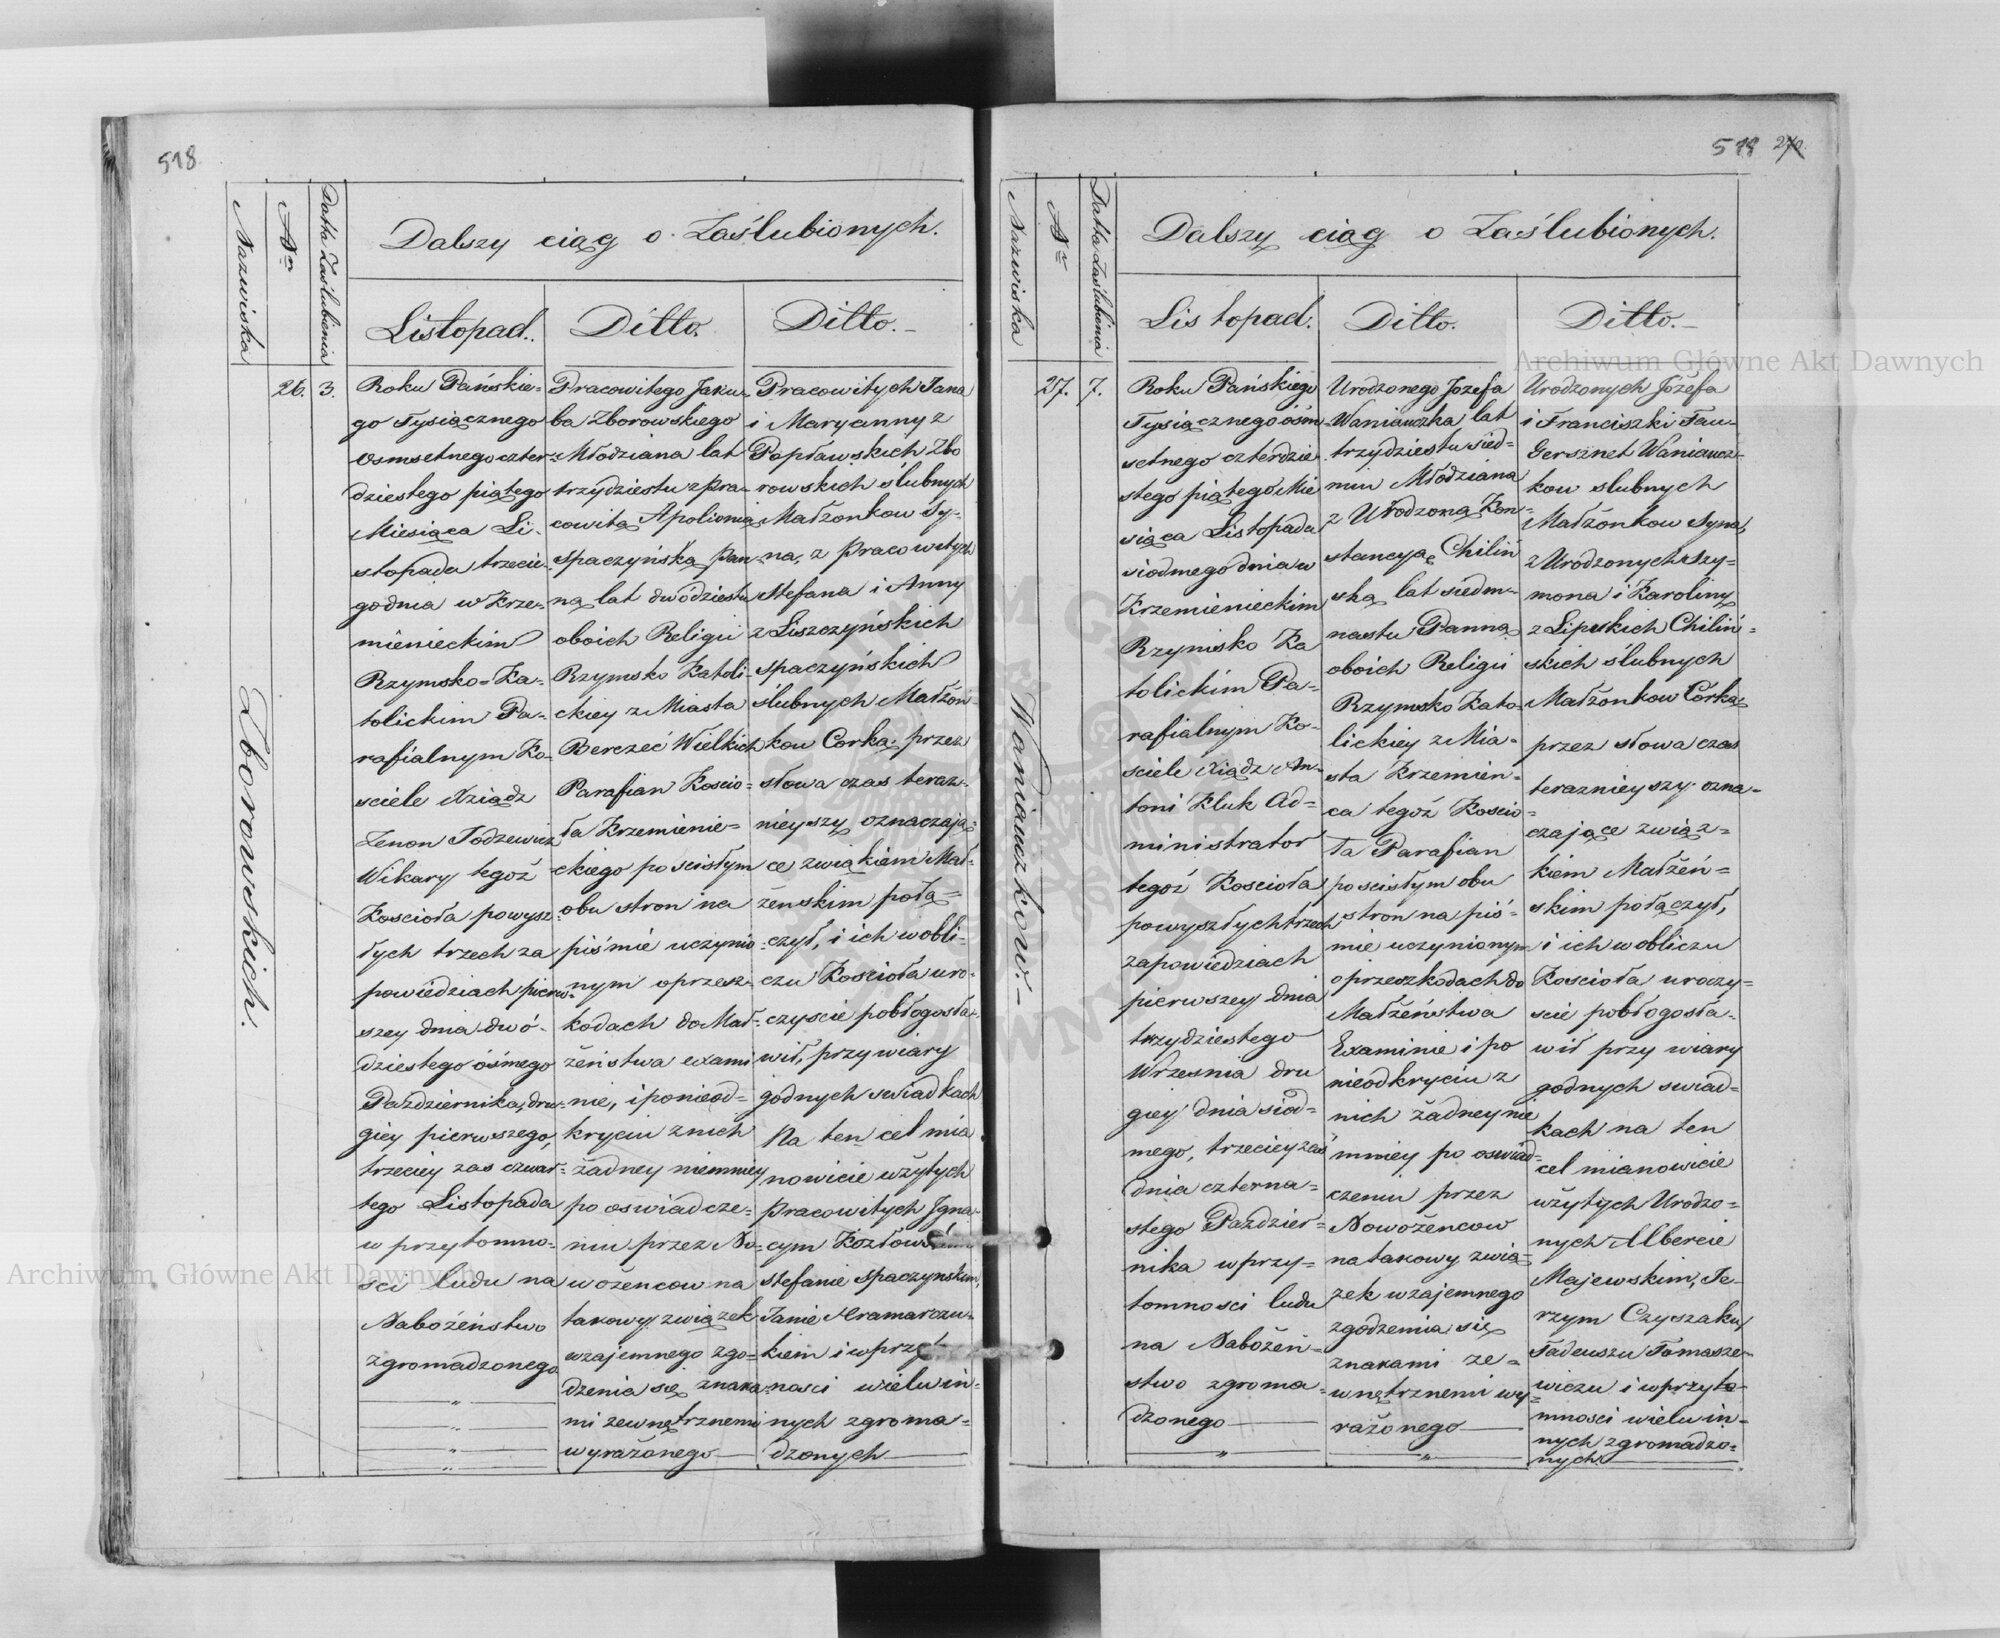 518
Nazwiska
Nr
Datta Zaślubienia
Dalszy ciąg o Zaślubionych.
Listopad.
Ditto.
Ditto.
Zborowskich.
26.
3.
Roku Pańskie-
go Tysiącznego
Osmsetnego czter-
dziestego piątego
Miesiąca Li-
stopada trzecie-
go dnia w Krze-
mienieckim
Rzymsko-Ka-
tolickim Pa-
rafialnym Ko-
sciele Xiądz
Zenon Jodzewicz
Wikary tegoż
Kościoła powysz-
łych trzech za
powiedziach pierw-
szey dnia dwó-
dziestego ósmego
Pazdziernika, dru-
giey pierwszego,
trzeciey zas czwar-
tego Listopada
w przytomno-
sci ludu na
Nabożeństwo
zgromadzonego
Pracowitego Jaku-
ba Zborowskiego
Młodziana lat
trzydziestu z Pra-
cowitą Apolionią
Spaczyńską Pan-
ną lat dwódziestu
oboich Religii
Rzymsko Katoli-
ckiey z Miasta
Berezec Wielkich
Parafian Koscio-
ła Krzemienie-
ckiego po scisłym
obu stron na
piśmie uczynio-
nym oprzesz-
kodach do Mał-
żeństwa exami
nie, i ponieod-
kryciu z nich
żadney niemniey
po oswiadcze-
niu przez No-
wożencow na
takowy związek
wzajemnego zgo-
dzenia się znaka-
mi zewnętrznemi
wyrażonego
Pracowitych Jana
i Maryanny z
Popławskich Zbo
rowskich ślubnych
Małżonkow Sy-
na, z Pracowitych
Stefana i Anny
z Liszczyńskich
Spaczyńskich
ślubnych Małżon
kow Corką; przez
słowa czas teraz-
nieyszy oznaczają-
ce związkiem Mał-
żenskim połą-
czył, i ich wobli-
czu Kościoła uro-
czyscie pobłogosła-
wił, przy wiary
godnych swiadkach
Na ten cel mia
nowicie wżytych
Pracowitych Igna-
cym
Stefanie Spaczynskim,
Janie Kramarczu-
kiem i w przy
nosci wielu in-
nych zgroma-
dzonych
518
Nazwiska
Nr
Datta Zaślubienia
Dalszy ciąg o Zaślubionych.
Listopad.
Ditto.
Ditto.
Waniauczkow.
27.
7.
Roku Pańskiego
Tysiącznego ośm
setnego czterdzie
stego piątego Mie
siąca Listopada
siodmego dnia w
Krzemienieckim
Rzymsko Ka
tolickim Pa-
rafialnym Ko-
sciele Xiądz An-
toni Kluk Ad-
ministrator
tegoż Kościoła
powyszłych trzech
zapowiedziach
pierwszey dnia
trzydziestego
Wrzesnia dru
giey dnia siod-
mego, trzeciey zaś
dnia czterna-
stego Pazdzier-
nika w przy-
tomnosci ludu
na Nabożeń-
stwo zgroma-
dzonego
Urodzonego Jozefa
Waniauczka lat
trzydziestu sied-
miu Młodziana
z Urodzoną Kon-
stancyą Chiliń
ską lat siedm-
nastu Panną
oboich Religii
Rzymsko Kato-
lickiey z Mia-
sta Krzemien-
ca tegoż Koscio-
ła Parafian
po scisłym obu
stron na piś-
mie uczynionym
oprzeszkodach do
Małżeństwa
Examinie i po
nieodkryciu z
nich żadney nie
mniey po oswiad-
czeniu przez
Nowożencow
na takowy zwią-
zek wzajemnego
zgodzenia się
znakami ze-
wnętrznemi wy-
rażonego
Urodzonych Jozefa
i Franciszki Fau-
Gersznet Waniaucz-
kow slubnych
Małżonkow Syna,
z Urodzonych Szy-
mona i Karoliny
z Lipskich Chiliń-
skich ślubnych
Małżonkow Corką
przez słowa czas
teraznieyszy ozna-
czające związ-
kiem Małżeń-
skim połączył,
i ich w obliczu
Kościoła uroczy-
scie pobłogosła-
wił przy wiary
godnych swiad-
kach na ten
cel mianowicie
wżytych Urodzo-
nych Albercie
Majewskim, Je-
rzym Czyszaku,
Tadeuszu Tomasze-
wiczu i w przyto-
mnosci wielu in-
nych zgromadzo-
nych.
Archiwum Główne Akt Dawnych
Archiwum Główne Akt Dawnych